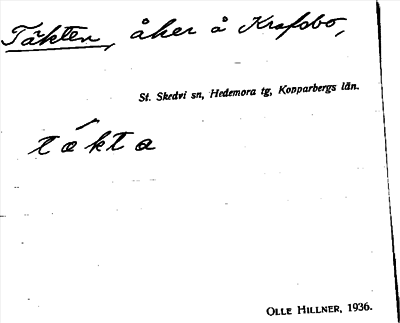 Täkten, åker å Krafsbo,
St. Skedvi sn, Hedemora tg, Kopparbergs län.
tǽkta
OLLE HILLNER, 1936.